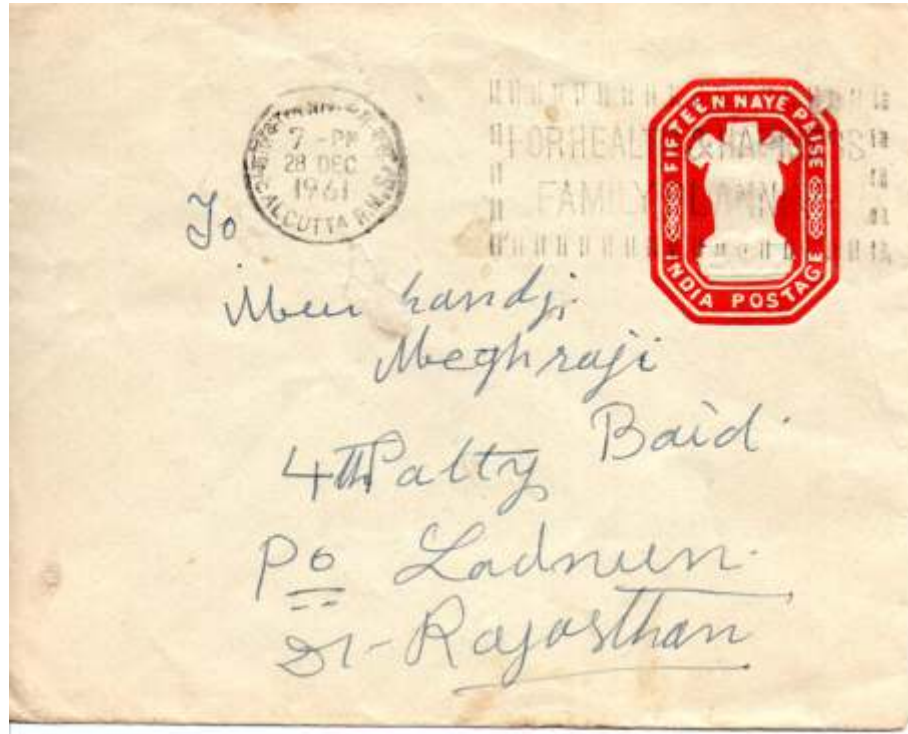 7 -PM
28 DEC
1961
CALCUTTA R.M.S.
FOR HEALTH & HAPPINESS
FAMILY PLANNING
FIFTEEN NAYE PAISE
INDIA POSTAGE
To
Meghraji
Baid.
4th Patty
Po Ladnun.
Dt-Rajasthan